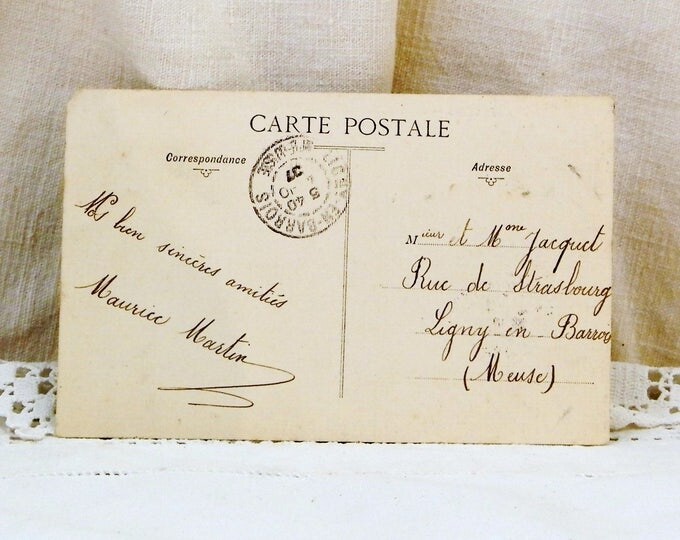 CARTE POSTALE
Correspondance
Adresse
LIGNY-EN-BARROIS
8 40
5
37
Mes bien sincères amitiés
Maurice Martin
Mieur et Mme Jacquet
Rue de Strasbourg
Ligny en Barrois
(Meuse)